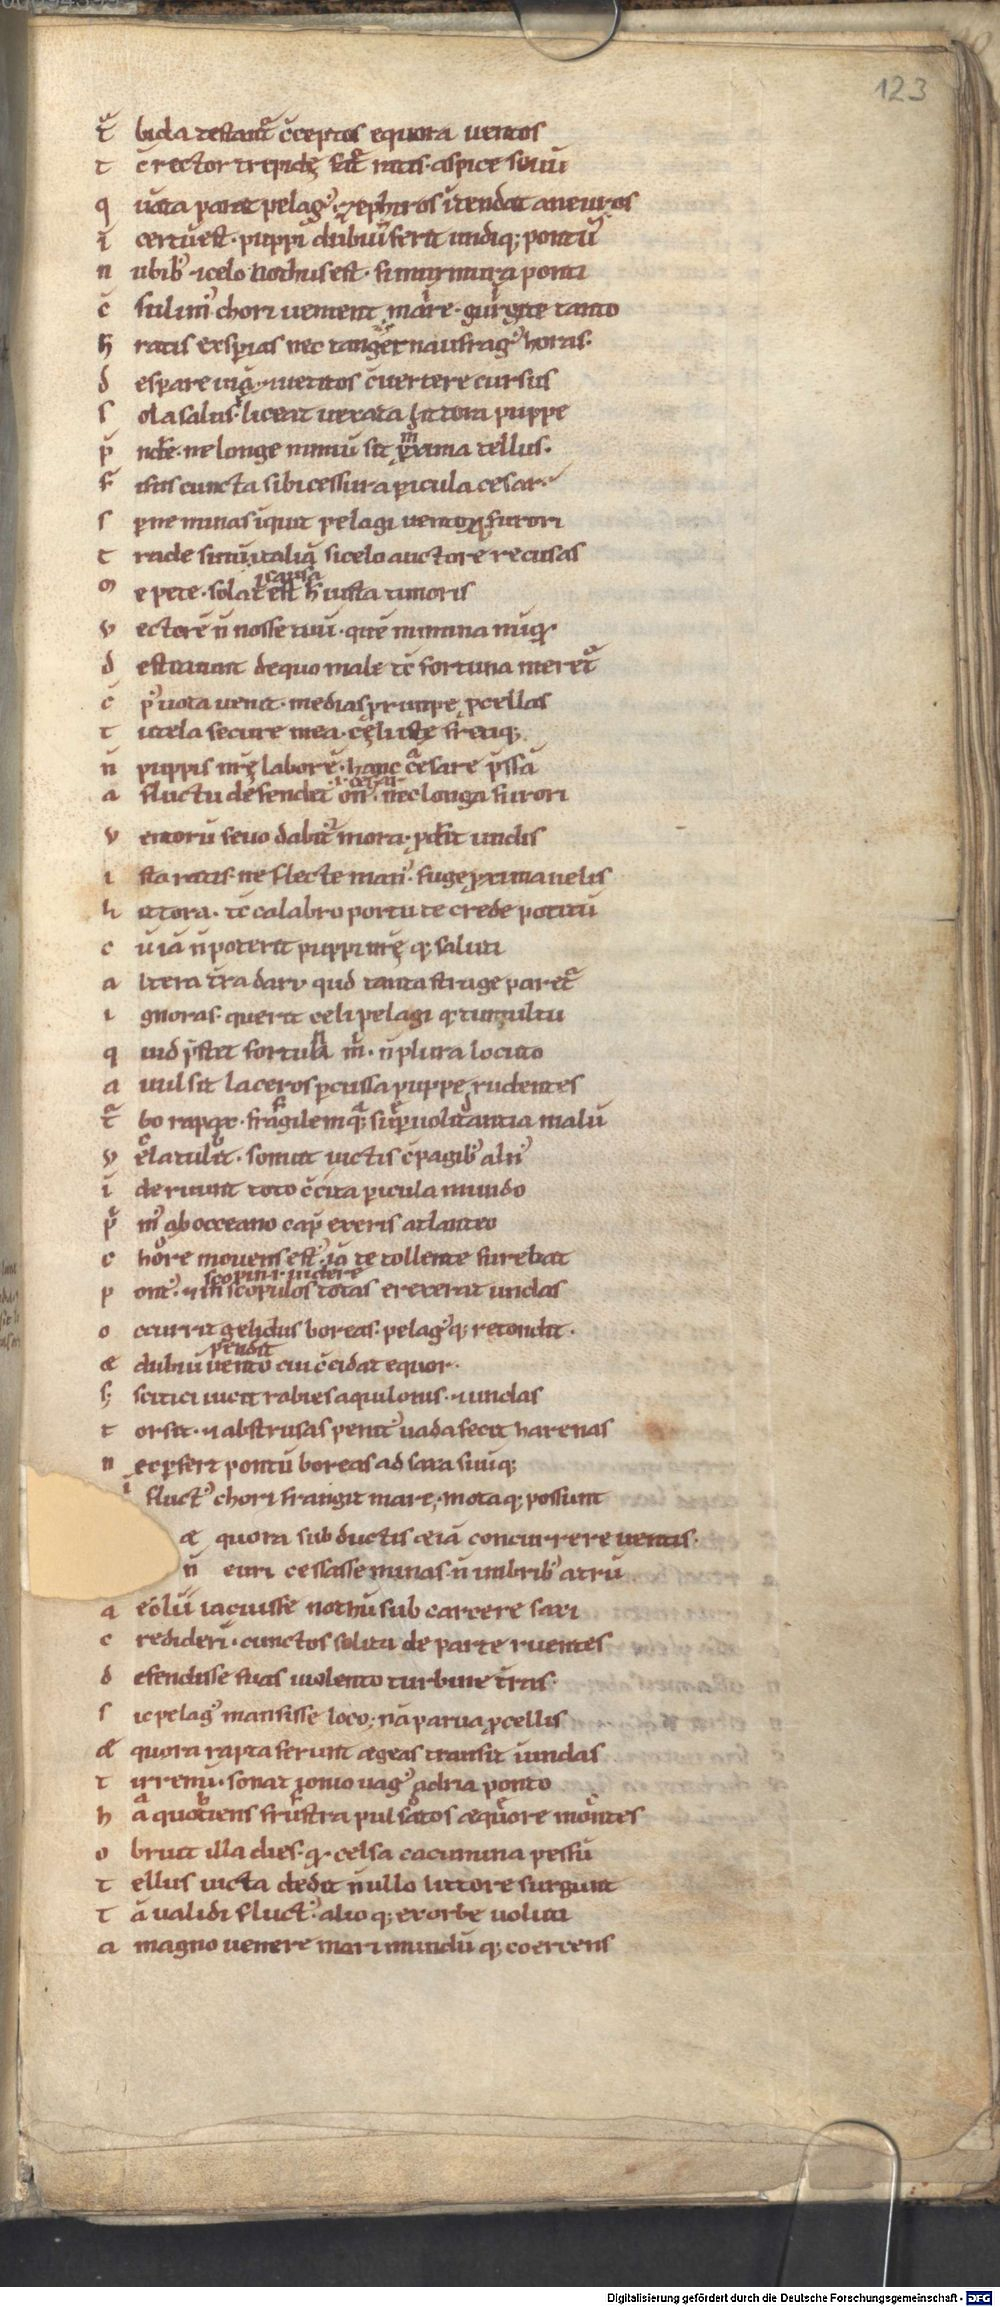 123
t᷑ bida testant᷑ c̄ceptos equora uentos
t c̄ rector trepidę fat᷑ ratis. aspice seuū
q uata paret pelag᷒. zephiros ītendat an euros
ī certū est. puppī dubiū ferit undiq; pontū
n ubib᷒ ⁊ celo nothus est. si murmura ponti
c̄ sulim᷒. chori uenient mare. gurgite tanto
h̄ ratis exsperias nec tanget naufrag᷒ horas.
d esperare uiā. ⁊ uetitos c̄uertere cursus
s ola salus. liceat uexata littora puppe
p̄ ndere. ne longe nimiū sit proxima tellus.
f isus cuncta sibi cessura pericula cesar.
s perne minas īquit pelagi uentoꝝ furori
t rade sinū italiā si celo auctore recusas
m e pete. sola t̄ est h̄ iusta timoris
i. causa
v ectorē n̄ nosse tuū. quē numina nūqͣ
d estituunt de quo male tc̄ fortuna meret᷑
c̄ p᷒ uota uenit. medias prumpe pcellas
t utela secure mea. cęli iste fretiq;
n̄ puppis nrę̄ labor ē. hanc cesare p̄ssā
a fluctu defendet on᷒. nec longa furori
i. cesar
v entorū seuo dabit᷑ mora. pderit undis
i sta ratis. ne flecte man᷒. fuge proxima uelis
h ittora. tc̄ calabro portu te crede potitū
c ū iā n̄ poterit puppi nrę̄ qͣ saluti
a ltera t̄ra dari. quid tanta strage paret᷑
i gnoras. querit celi pelagi qͣ tumultu
q uid p̄stet fortuna m̄. n̄ plura locuto
a uulsit laceros percussa puppe rudentes
t᷑ bo rapax. fragilemq; superuolitantia malū
v ela tulit. sonuit uictis c̄pagib᷒ aln᷒
ī de ruunt toto c̄cita pericula mundo
p̄ m᷒ ab occeano cap̄ exeris atlanteo
c hore mouens est᷒. iā te tollente furebat
p ont᷒. ⁊ in scopulos totas erexerat undas
o ccurrit gelidus boreas. pelag᷒q; retondit.
æ dubiū uento cui c̄cidat equor.
pendit
s; scitici uicit rabies aquilonis. ⁊ undas
t orsit. ⁊ abstrusas penit᷒ uada fecit harenas
n ec perfert pontū boreas ad saxa suūq;
ī fluct᷒ chori frangit mare. motaq; possunt
æ quora subductis etiā concurrere uentis.
n̄ euri cessasse minas. n̄ imbrib᷒ atrū
a eolū iacuisse nothū sub carcere saxi
c redideri᷒. cunctos solita de parte ruentes
d efendisse suas uiolento turbine t̄ras.
s ic pelag᷒ mansisse loco. nā parua pcellis
æ quora rapta ferunt ægeas transit ī undas
t irrenū. sonat ionio uag᷒ adria ponto
h a quotiens frustra pulsatos æquore montes
o bruit illa dies. qͣ. celsa cacumina pessū
t ellus uicta dedit n̄ ullo littore surgunt
t ā ualidi fluct᷒. alioq; ex orbe uoluti
a magno uenere mari mundūq; coercens
Digitalisierung gefördert durch die Deutsche Forschungsgemeinschaft - DFG